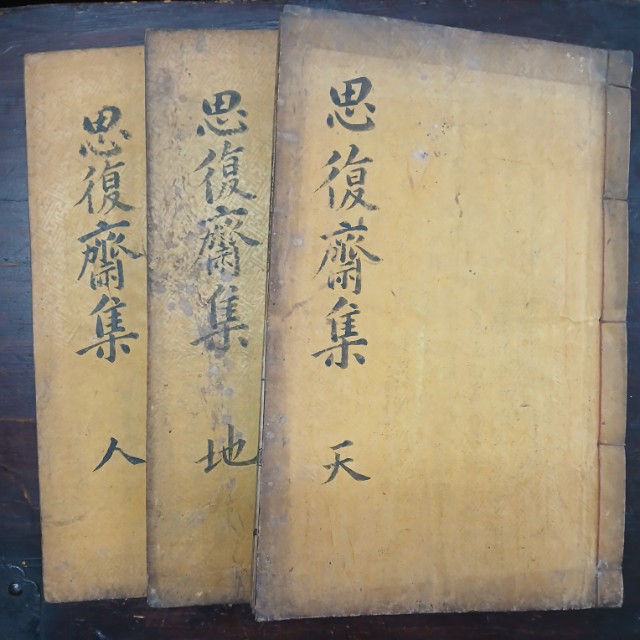 思復齋集 天
思復齋集 地
思復齋集 人